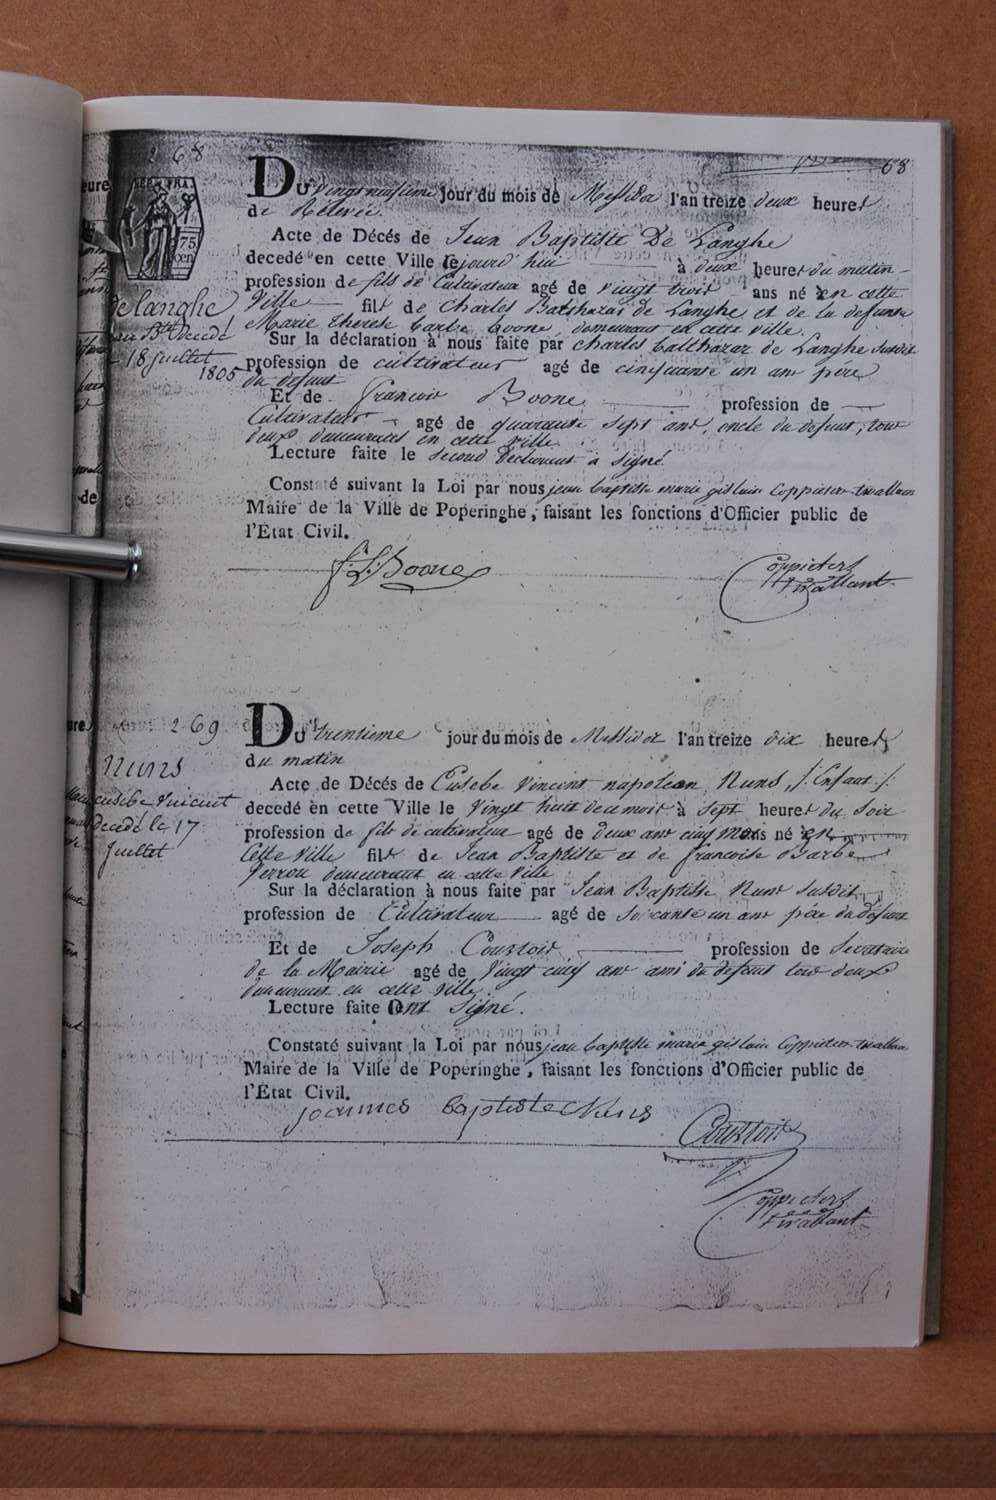 268
68
REP. FRA.
75
cen
Du vingt neufieme jour du mois de Messidor l'an treize deux heures
de Relevée
Acte de Décés de Jean Baptiste De Langhe
decedé en cette Ville le jourd'hui à deux heures du matin
profession de fils de Cultivateur agé de vingt trois ans né en cette
Ville fils de Charles Balthazar de Langhe et de la defunte
Marie therese barbe Boone, demeurant en cette ville.
Sur la déclaration à nous faite par charles balthazar de Langhe susdit
profession de cultivateur agé de cinquante un ans pere
du defunt
Et de francois Boone profession de
Cultivateur agé de quarante sept ans, oncle du defunt, tous
deux demeurants en cette ville
Lecture faite le second declarant a signé
Constaté suivant la Loi par nous jean baptiste marie gislain Coppieters-twallan
Maire de la Ville de Poperinghe, faisant les fonctions d'Officier public de
l'État Civil.
Boone
Coppieters
t'wallant
delanghe
Bte Decedé
18 juillet
1805
269
nuns
eusebe vincent
decedé le 17
juillet
Du trentieme jour du mois de Messidor l'an treize dix heures
du matin
Acte de Décés de Eusebe Vincent napoleon Nuns, /: Enfant :/
decedé en cette Ville le Vingt huit du mois à sept heures du soir
profession de fils de cultivateur agé de deux ans cinq mois né en
Cette Ville fils de Jean Baptiste et de francoise Barbe
perrou demeurant en cette ville
Sur la déclaration à nous faite par Jean Baptiste Nuns susdit
profession de Cultivateur agé de soixante un ans pére du défunt
Et de Joseph Courtois profession de Secretaire
de la Mairie agé de Vingt cinq ans ami du defunt tous deux
demeurant en cette ville.
Lecture faite ont signé.
Constaté suivant la Loi par nous jean baptiste marie gislain Coppieters-twallan
Maire de la Ville de Poperinghe, faisant les fonctions d'Officier public de
l'État Civil.
joannes baptiste Nuns
Courtois
Coppieters
t'wallant